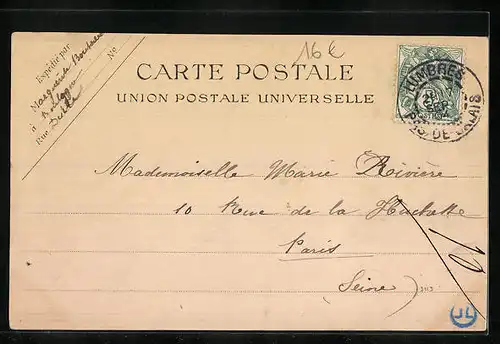 16€
Expédié par
Marguerite
à
Rue
N°
CARTE POSTALE
UNION POSTALE UNIVERSELLE
LUMBRES
PAS-DE-CALAIS
Mademoiselle Marie Rivière
10 Rue de la Huchette
Paris
(Seine)
10
JL